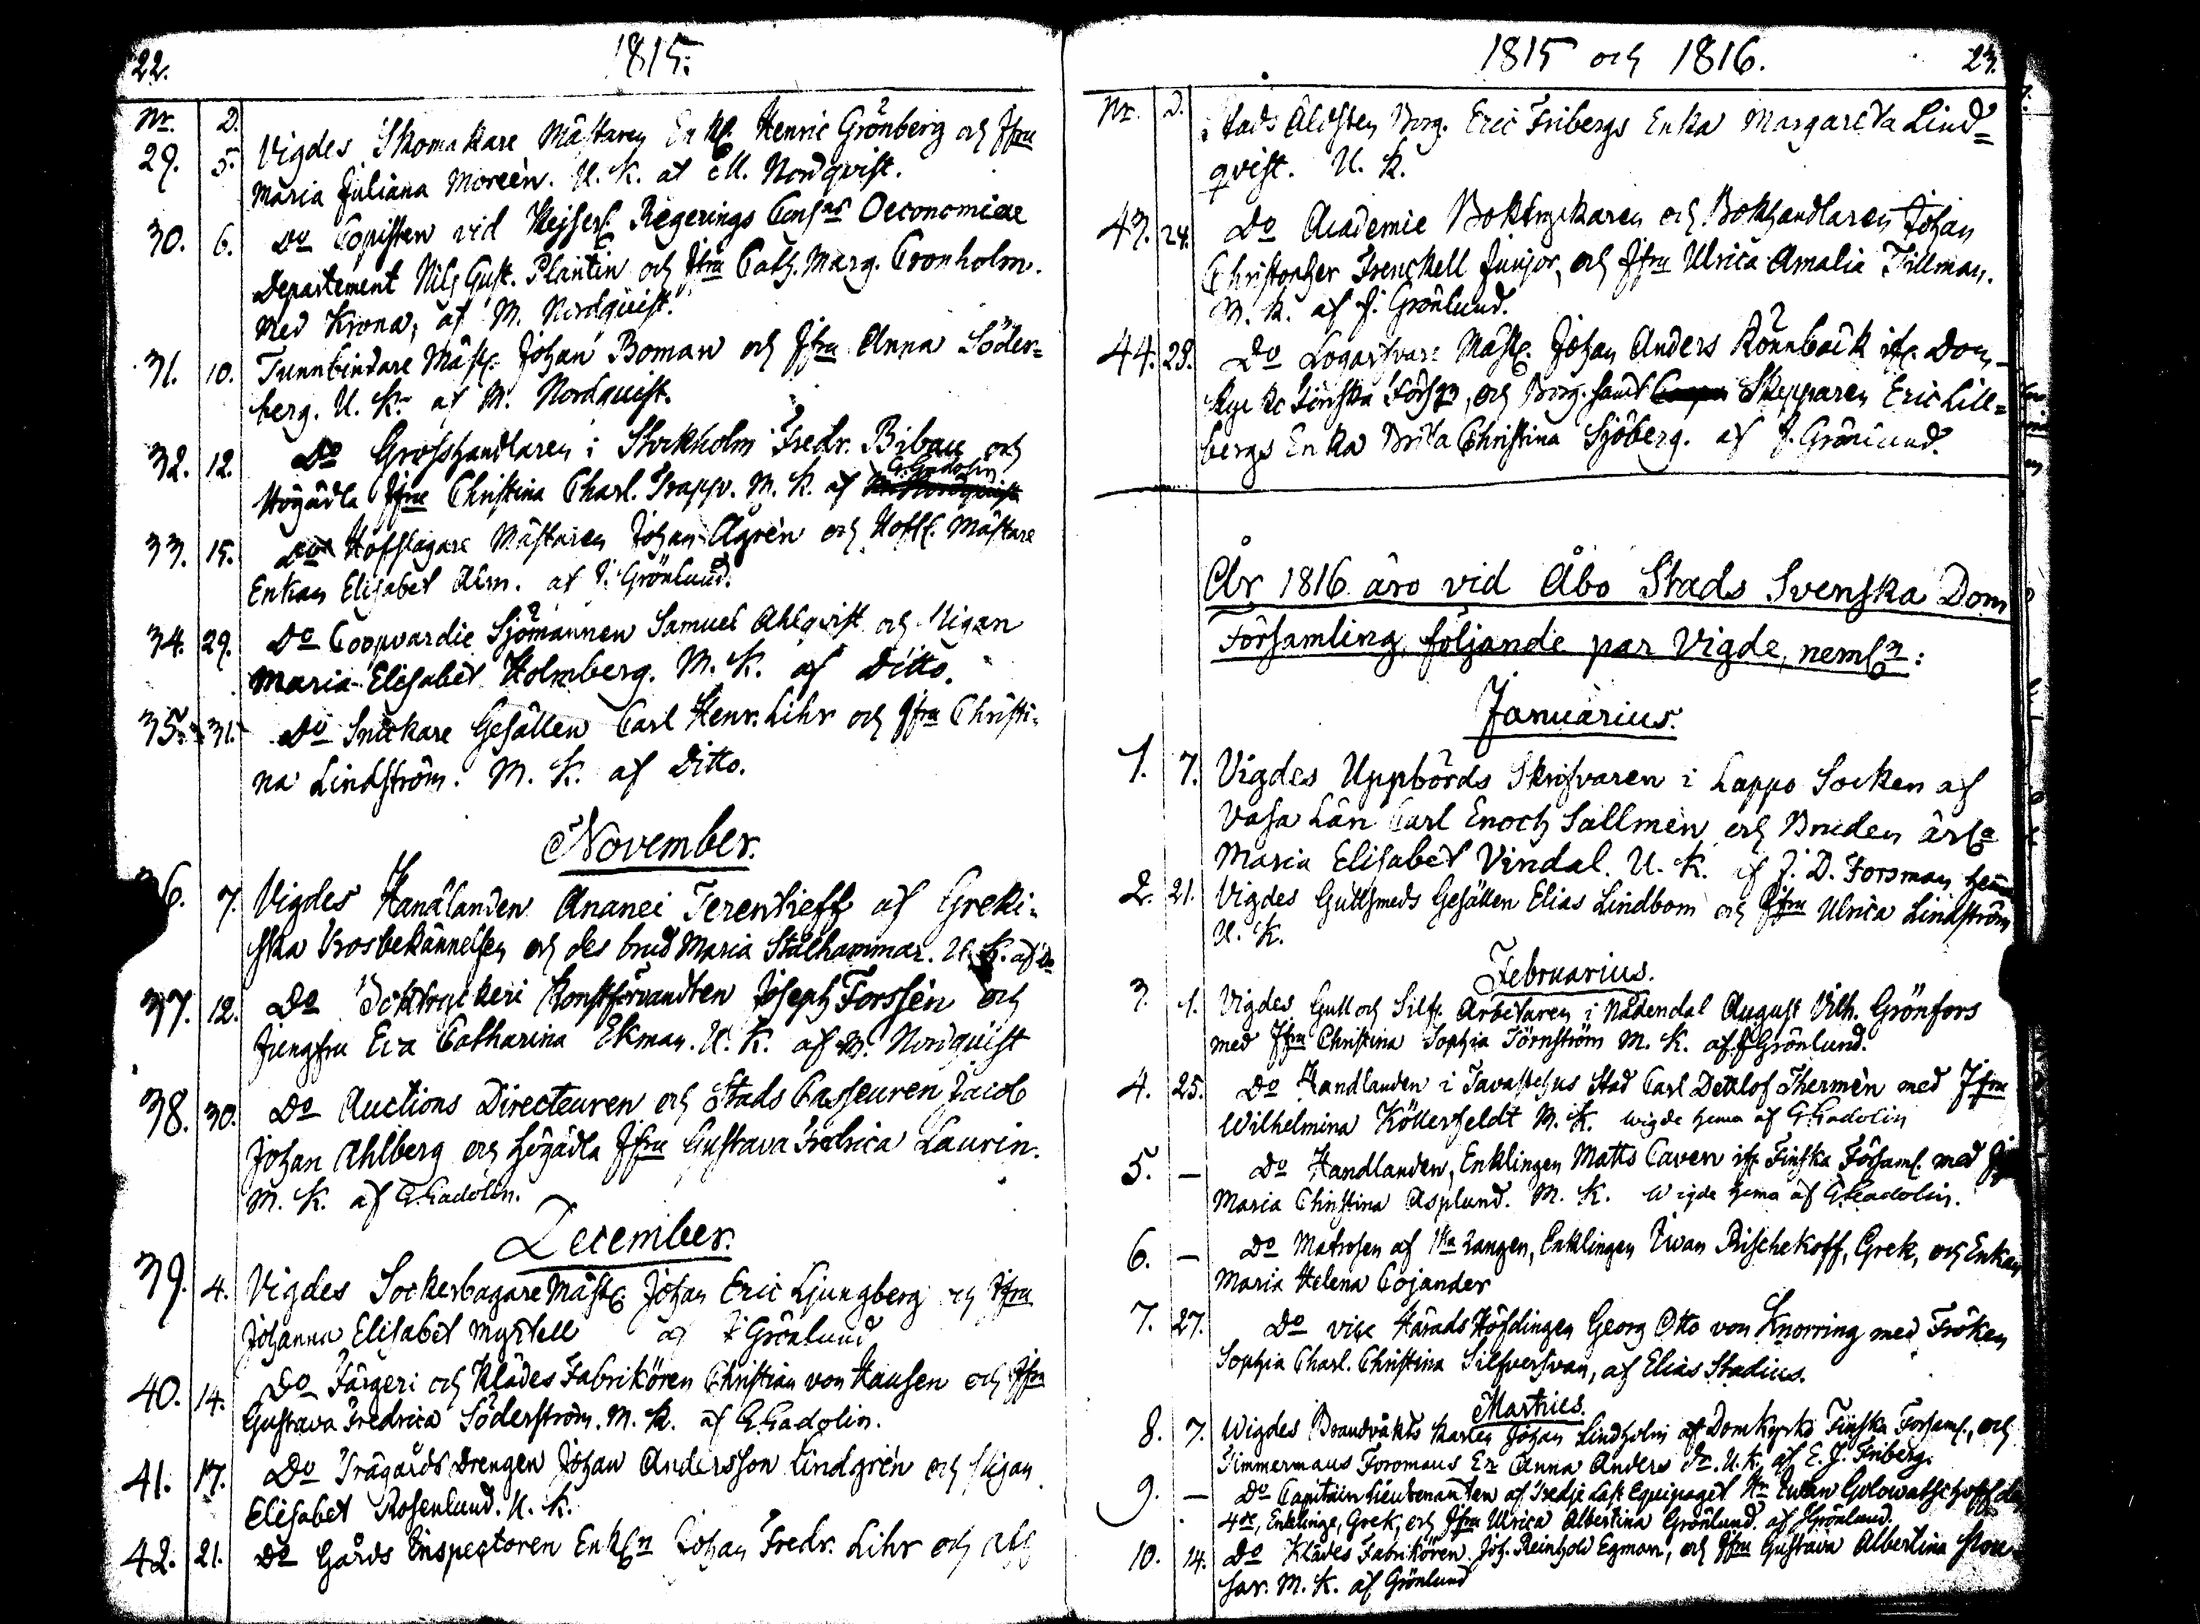 22.
1815.
Nr. D.
29. 5. Vigdes Skomakare Mästaren Enkl. Henric Grönberg och Jfru
Maria Juliana Moreèn. U. K. af M. Nordqvist.
30. 6. Do Copisten vid Kejserl. Regerings Cons:s Oeconomiae
Departement Nils Gust. Plantin och Jfru Cath. Marg. Cronholm.
med Krona, af M. Nordquist.
31. 10. Tunnbindare Mäst. Johan Boman och Jfru Anna Söder=
berg. U. K. af M. Nordquist.
32. 12. Do Grosshandlaren i Stockholm Fredr. Bibau och
Högädla Jfru Christina Charl. Trapp. M. K. af G. Gadolin
33. 15. Do Hofslagare Mästaren Johan Ågrèn och Hofsl. Mästare
Enkan Elisabet Alm. af J. Grönlund.
34. 29. Do Coopvardie Sjömannen Samuel Ahlqvist och Pigan
Maria Elisabet Holmberg. M. K. af Ditto.
35. 31. Do Snickare Gesällen Carl Henr. Lihr och Jfru Christi=
na Lindström. M. K. af Ditto.
November.
36. 7. Vigdes Handlanden Ananei Terentieff af Greki=
ska Trosbekännelsen och des brud Maria Stålhammar. U. K. af Do
37. 12. Do Boktryckeri Konstförvandten Joseph Forssèn och
Jungfru Eva Catharina Ekman. U. K. af M. Nordquist
38. 30. Do Auctions Directeuren och Stads Casseuren Jacob
Johan Ahlberg och högädla Jfru Gustava Fredrica Laurin.
M. K. af G. Gadolin.
December.
39. 4. Vigdes Sockerbagare Mäst. Johan Eric Ljungberg och Jfru
Johanna Elisabet Myrtell af J. Grönlund
40. 14. Do Färgeri och Klädes Fabrikören Christian von Hausen och Jfru
Gustava Fredrica Söderström. M. K. af G. Gadolin.
41. 17. Do Trägårds Drengen Johan Andersson Lindgrèn och Pigan
Elisabet Rosenlund. U. K.
42. 21. Do Gårds Inspectoren Enkl:n Johan Fredr. Lihr och
1815 och 1816. 23.
Nr. D.
Stads Äldsten Borg. Eric Fribergs Enka Margareta Lind=
qvist. U. K.
43. 24. Do Academie Boktryckaren och Bokhandlaren Johan
Christopher Frenckell Junior, och Jfru Ulrica Amalia Tillman.
M. K. af J. Grönlund.
44. 28. Do Logarfvare Mäst. Johan Anders Rönnbäck ifr. Dom=
kyrko Finska Förs:g, och Borg. samt Skepparen Eric Lill=
bergs Enka Brita Christina Sjöberg. af J. Grönlund.
År 1816 äro vid Åbo Stads Svenska Dom
Församling, följande par Vigde, neml:n:
Januarius.
1. 7. Vigdes Uppbörds Skrifvaren i Lappo Socken af
Vasa Län Carl Enoch Sallmèn och Bruden ärl:a
Maria Elisabet Vindal. U. K. af J. D. Forsman hema
2. 21. Vigdes Guldsmeds Gesällen Elias Lindbom och Jfru Ulrica Lindström
U. K.
Februarius.
3. 1. Vigdes Gull och Silf. Arbetaren i Nådendal August Vilh. Grönfors
med Jfru Christina Sophia Törnström M. K. af J Grönlund.
4. 25. Do Handlanden i Tavastehus Stad Carl Detlof Thermèn med Jfru
Wilhelmina Köllerfeldt M. K. wigde hema af G. Gadolin
5. — Do Handlanden, Enklingen Matts Caven ifr. Finska Församl. med
Maria Christina Asplund. M. K. wigde hema af G. Gadolin.
6. — Do Matrosen af Enklingen Iwan Rischekoff, Grek, och Enkan
Maria Helena Cojander
7. 27. Do vice Härads Höfdingen Georg Otto von Knorring med Fröken
Sophia Charl. Christina Silfversvan, af Elias Stadius.
Martius.
8. 7. Wigdes Brandvakts Karlen Johan Lindholm af Domkyrko Finska Forsaml., och
Timmermans Foromans Ea Anna Anders dr. U. K. af E. J. Friberg.
9. — Do Capitain Lieutenanten af Tredje Last Equipaget Hr Iwan Golowatschoff den
4de, Enklinge, Grek, och Jfru Ulrica Albertina Grönlund. af J Grönlund.
10. 14. Do Klädes Fabrikören Joh. Reinhold Egman, och Jfru Gustava Albertina
sar. M. K. af Grönlund